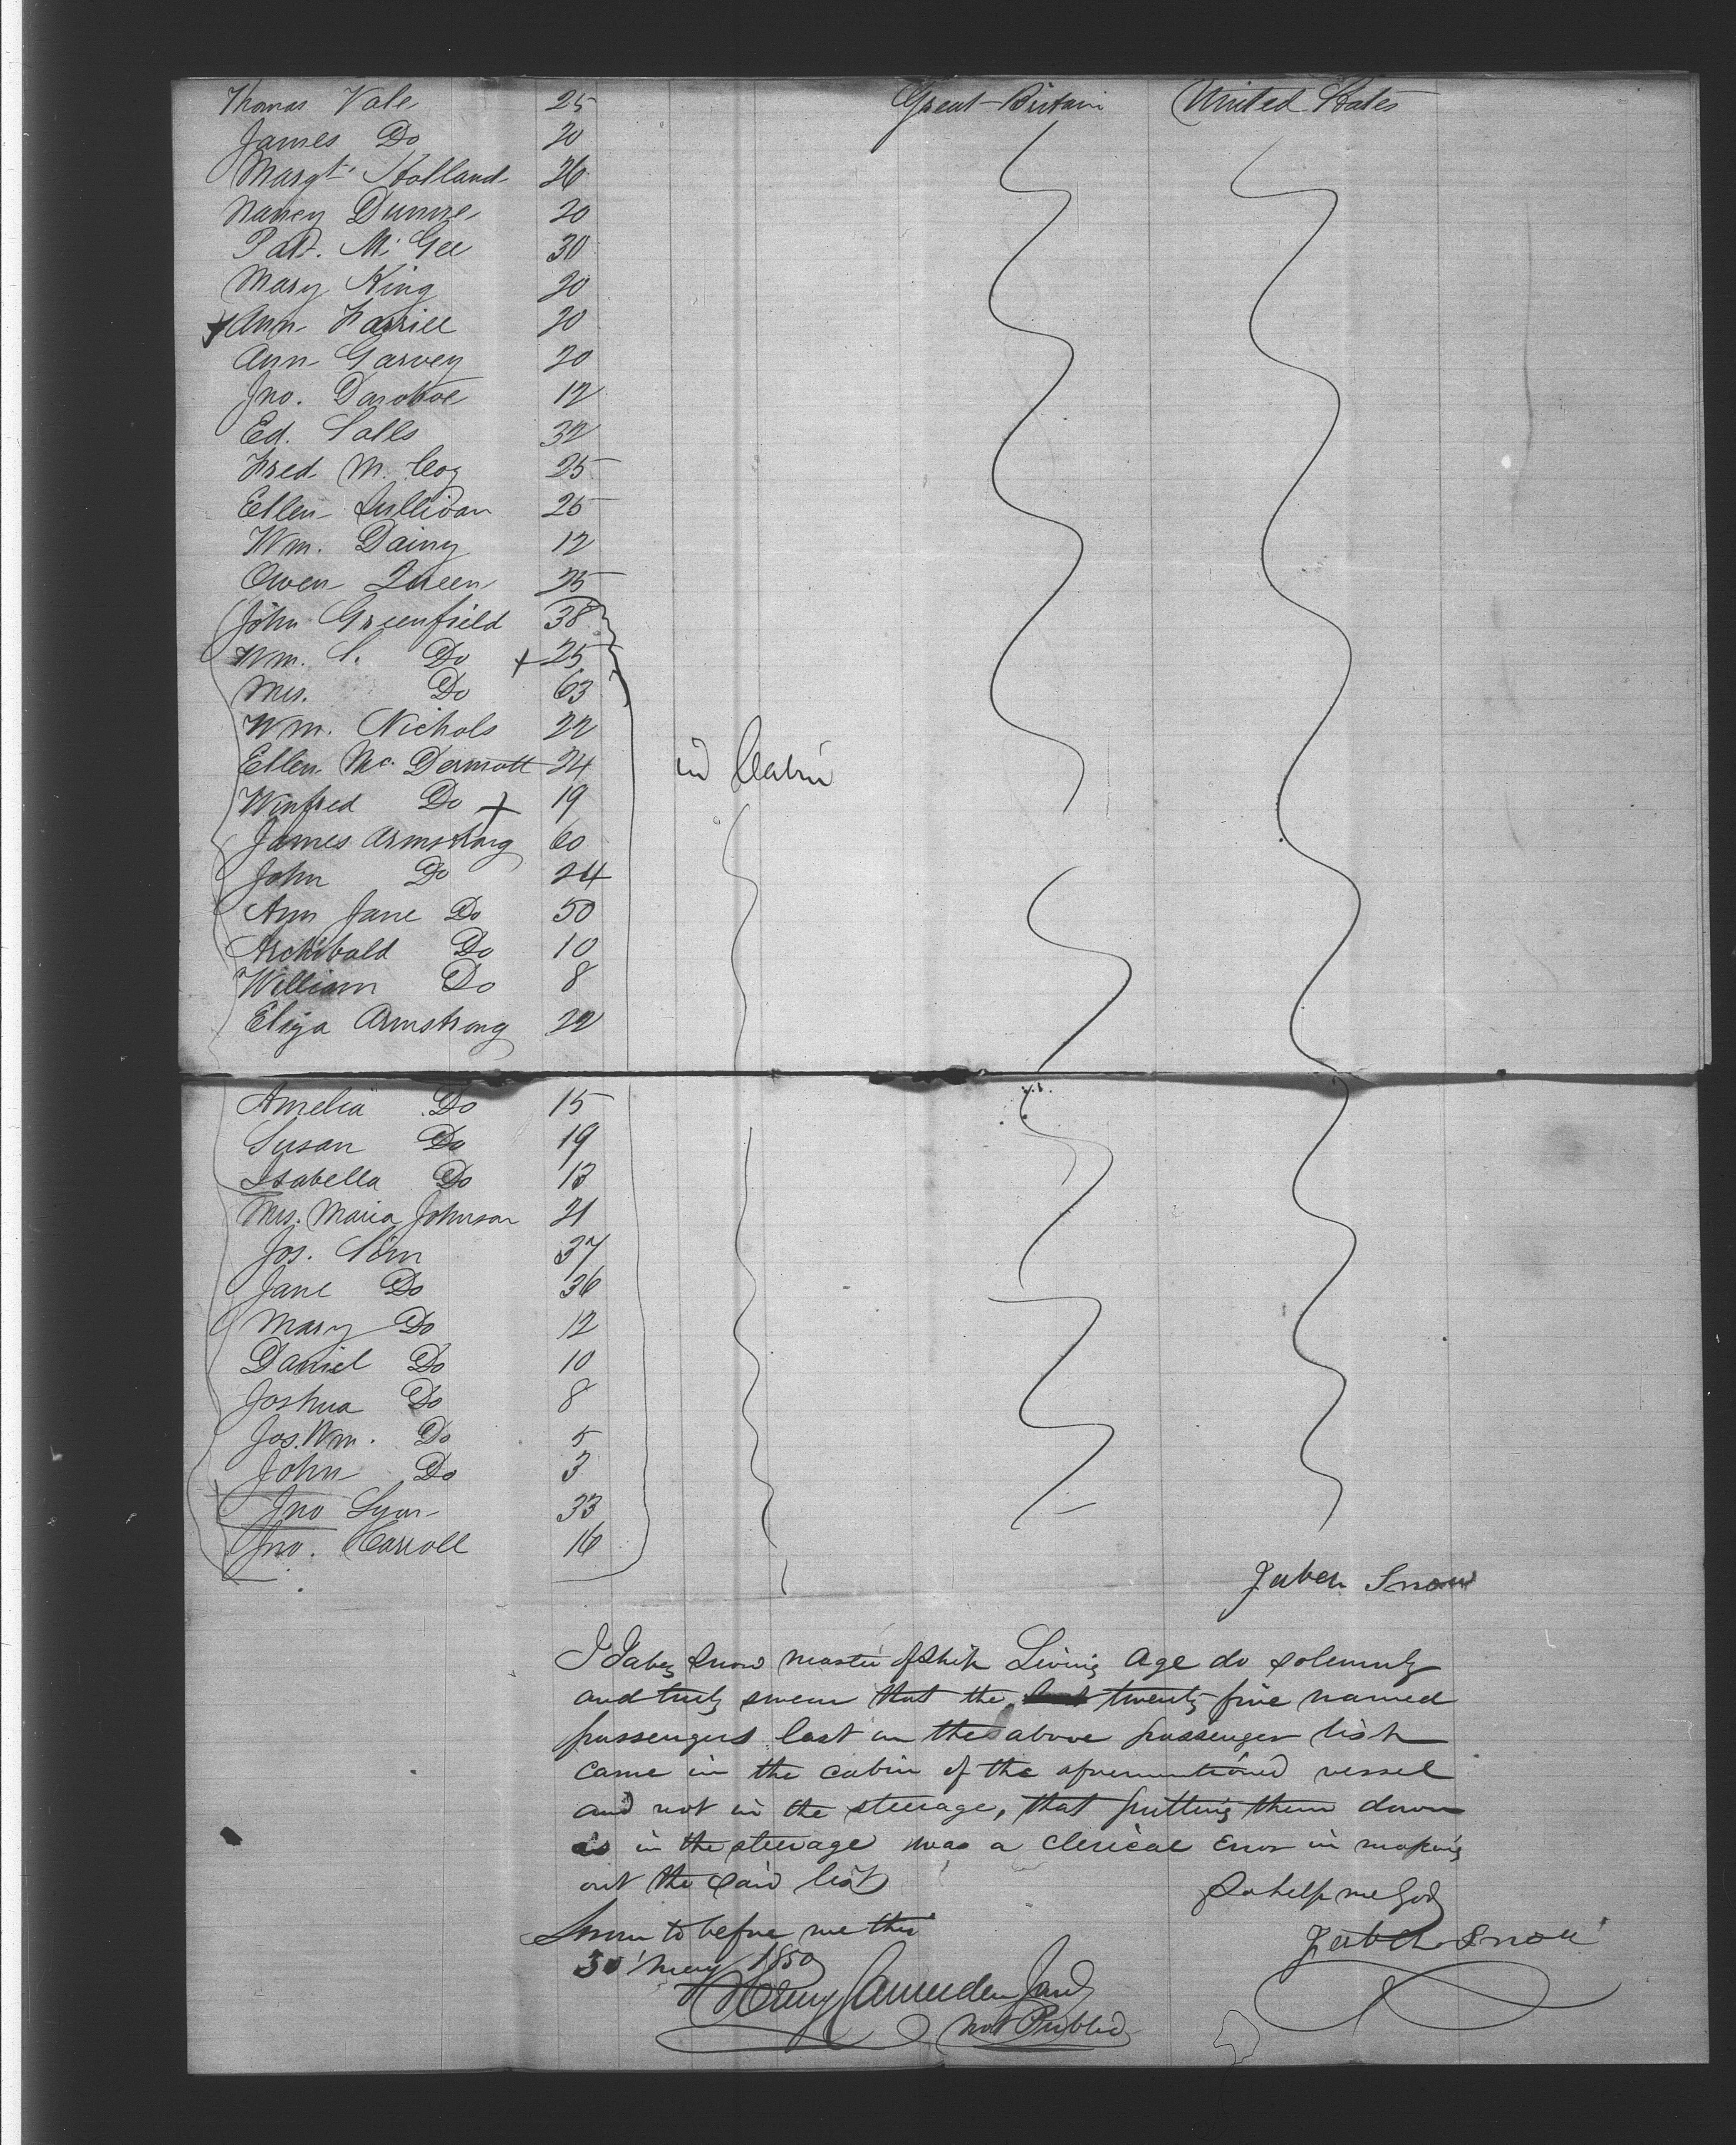 Thomas Vale 25 Great Britain United States
James Do 20
Margt. Holland 26
Nancy Dunne 20
Pat. Mc Gee 30
Mary King 20
Ann Farrill 20
Ann Garvey 20
Jno. 12
Ed. Salls 32
Fred. M. Coy 25
Ellen Sullivan 25
Wm. Dainy 12
Owen Queen 25
John Greenfield 38
Wm. S. Do + 25
Mrs. Do 63
Wm. Nichols 22
Ellen Mc. Dermott 24 in Cabin
Winfred Do + 19
James Armstrong 60
John Do 24
Ann Jane Do 50
Archibald Do 10
William Do 8
Eliza Armstrong 22
Amelia Do 15
Susan Do 19
Isabella Do 13
Mrs. Maria Johnson 21
Jos. 37
Jane Do 36
Mary Do 12
Daniel Do 10
Joshua Do 8
Jos. Wm. Do 5
John Do 3
Jno Lyon 33
Jno. Carroll 16
Jabez Snow
I Jabez Snow master of Ship Living Age do solemnly
and truly swear that the twenty five named
passengers last on the above passenger list
came in the cabin of the aforementioned vessel
and not in the steerage, that putting them down
as in the steerage was a clerical Error in making
out the said list
So help me God
Sworn to before me this Jabez Snow
30 May 1850
Henry
Not Public